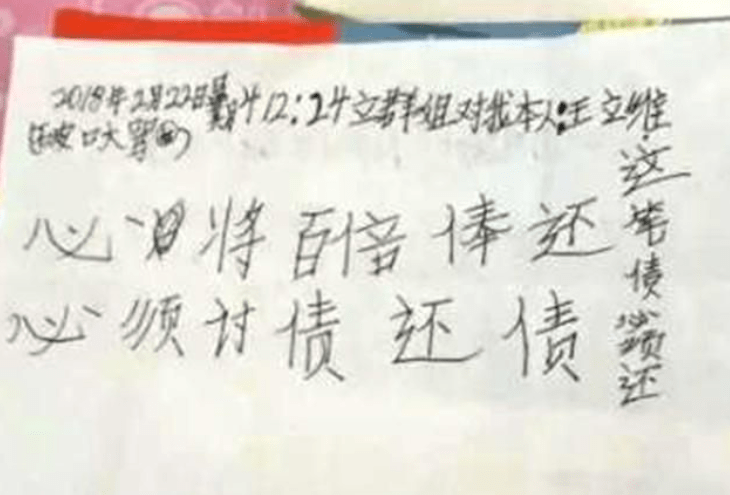 2018年2月22日星期4 12:24立群姐对我本人:王立维.
破口大骂
必将百倍俸还
必须讨债还债
这笔债必须还